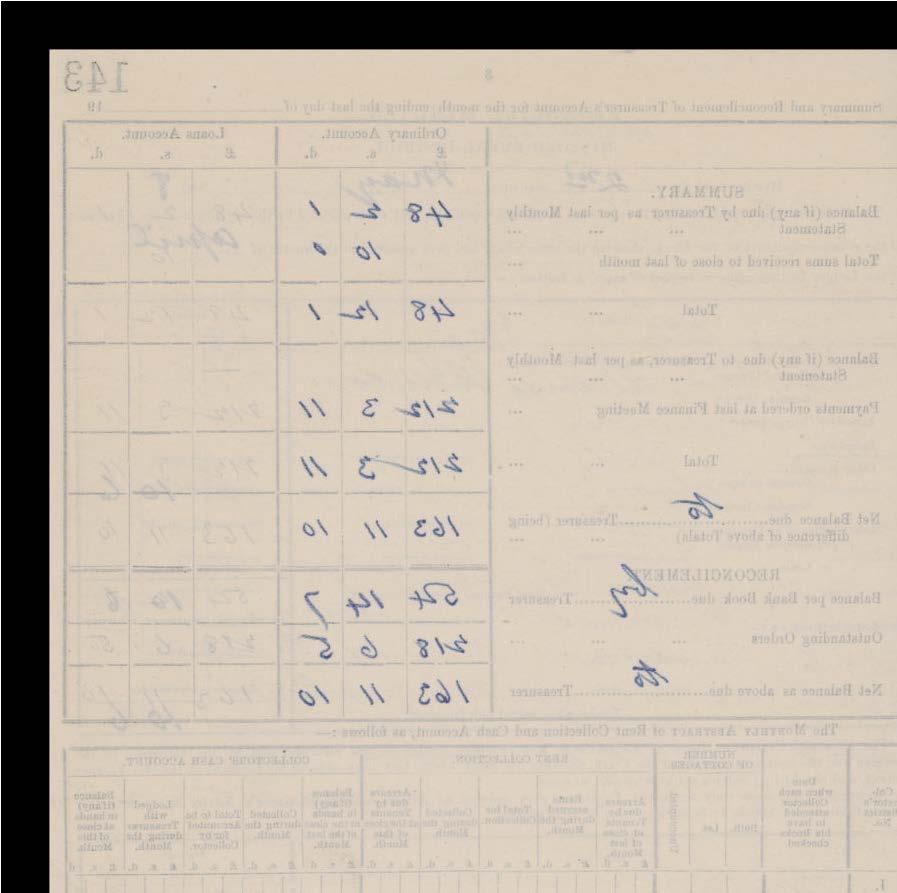 143
3
Summary and Reconcilement of Treasurer's Account for the month ending the last day of 19
Ordinary Account. Loans Account.
£ s. d. £ s. d.
SUMMARY.
Balance (if any) due by Treasurer as per last Monthly
Statement ... ... ... 48 2 1
Total sums received to close of last month ... 10 0
Total ... ... 48 12 1
Balance (if any) due to Treasurer, as per last Monthly
Statement ... ... ...
Payments ordered at last Finance Meeting ... 212 3 11
Total ... ... 212 3 11
Net Balance due to Treasurer (being
difference of above Totals) ... ... 163 11 10
RECONCILEMENT
Balance per Bank Book due by Treasurer 54 14 7
Outstanding Orders ... ... ... 218 6 5
Net Balance as above due to Treasurer 163 11 10
The Monthly Abstract of Rent Collection and Cash Account, as follows:—
NUMBER OF COTTAGES RENT COLLECTION. COLLECTORS CASH ACCOUNT.
Date when each Collector attended to have his Books checked
Built. Let.
Arrears due by Tenants at close of last Month.
Rents accrued during the Month.
Total for Collection.
Collected during the Month.
Arrears due by Tenants at close of this Month.
Balance (if any) in hands at close of last Month.
Collected during the Month.
Total to be Accounted for by Collector.
Lodged with Treasurer during the Month.
Balance (if any) in hands at close of this Month.
1